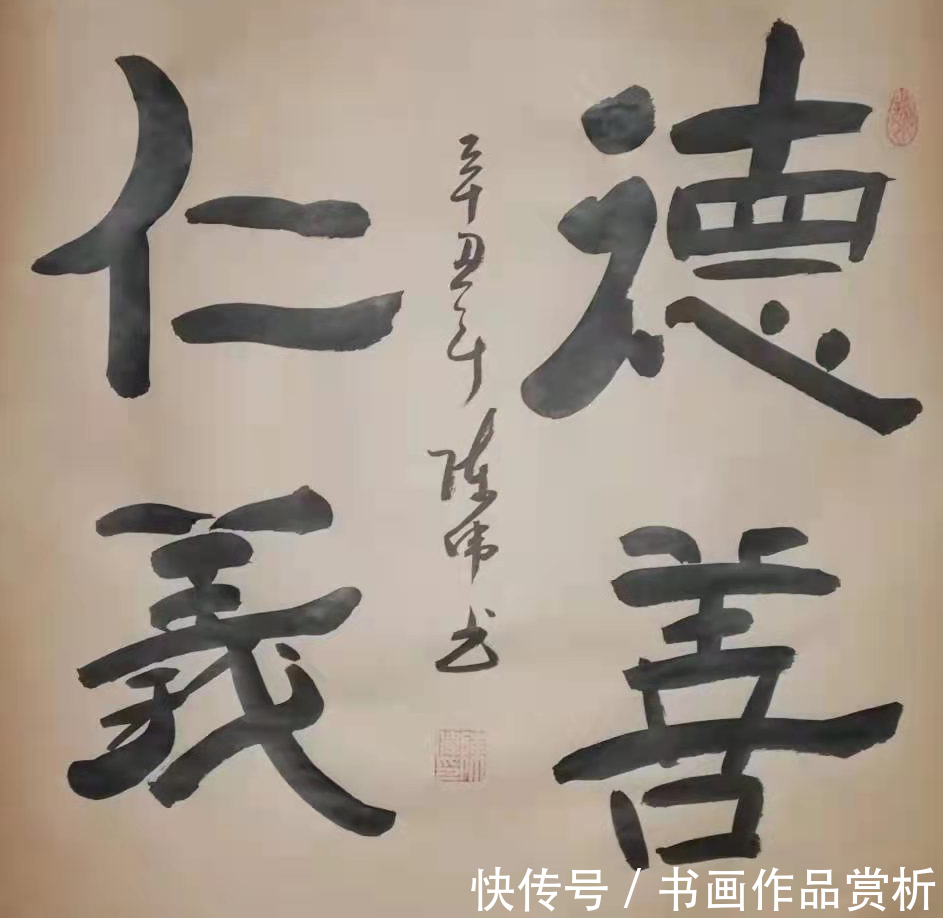 德善
仁義
辛丑年 陈伟书
快传号 / 书画作品赏析